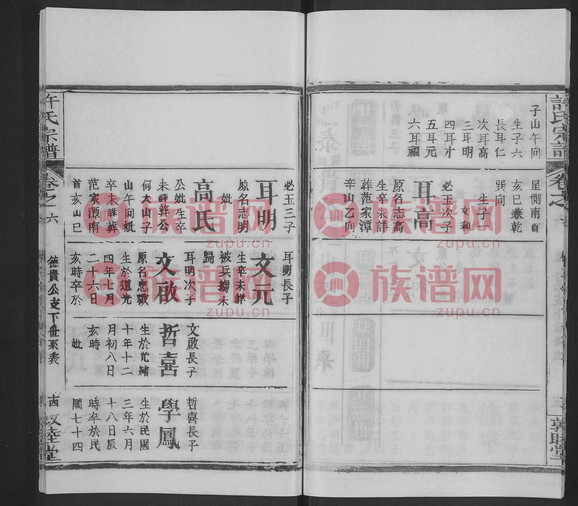 許氏宗譜
卷之六
子山午向
生子六
長耳仁
次耳高
三耳明
四耳才
五耳元
六耳順
星側南
亥巳兼乾
巽向
生子
文和
耳高
必玉次子
原名志高
生卒未詳
葬范家潭
辛山乙向
敦睦堂
耳明
必玉三子
原名志明
妣
高氏
公妣生卒
未詳葬公
何大山子
山午向妣
卒未詳葬
范家潭南
首亥山巳
文元
耳明長子
生卒未詳
被長髮未
歸
文啟
耳明次子
原名志啟
生於道光
四年七月
二十六日
亥時卒於
哲善
文啟長子
生於光緒
十年十二
月初八日
亥時
妣
學鳳
哲善長子
生於民國
三年六月
十八日辰
時卒於民
國七十四
許氏宗譜
卷之六
德貴公支下世系表
敦睦堂
族谱网
zupu.cn
族谱网
zupu.cn
族谱网
zupu.cn
族谱网
zupu.cn